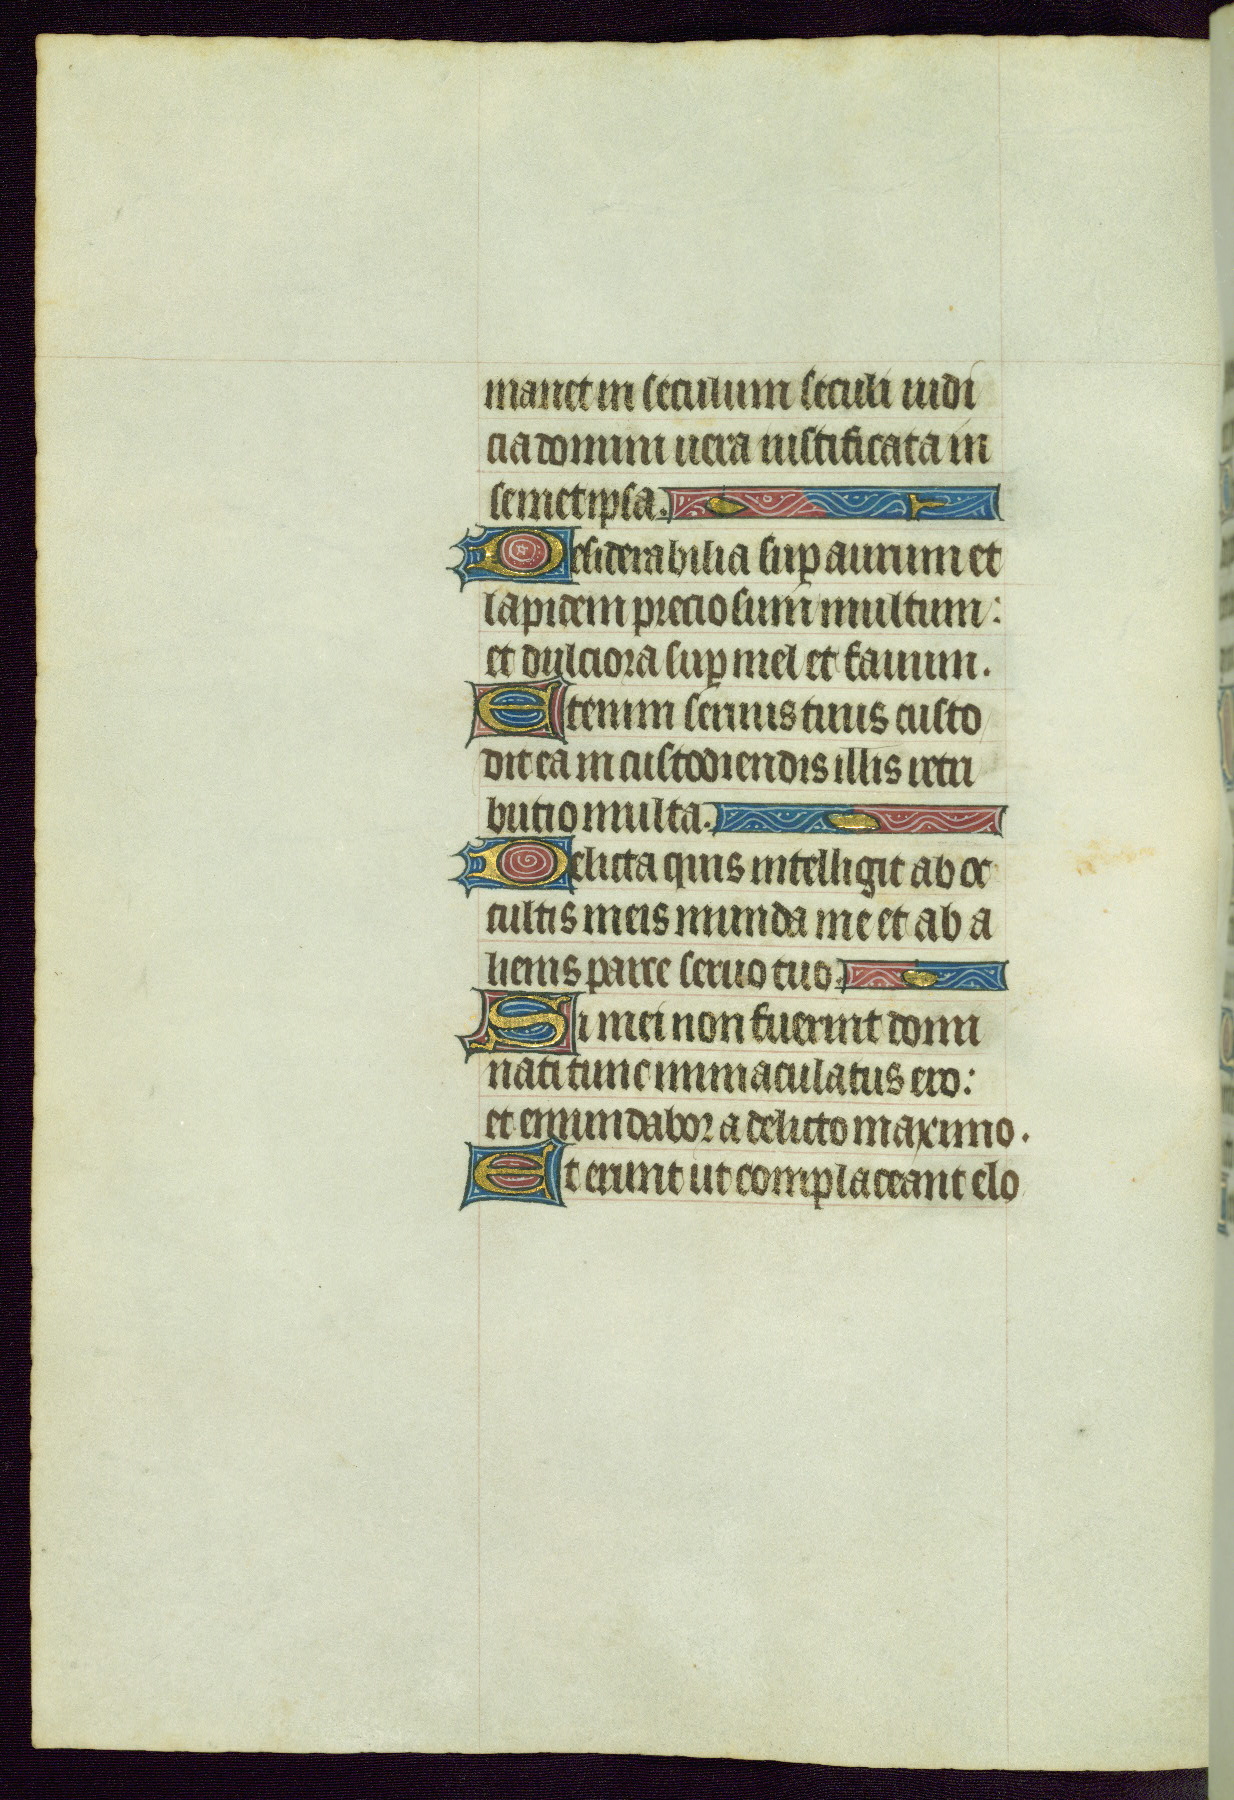 manet in seculum seculi iudi
cia domini uera iustificata in
semetipsa.
Desiderabilia sup aurum et
lapidem preciosum multum:
et dulciora sup mel et fauum.
Etenim seruus tuus custo
dit ea in custodiendis illis retri
butio multa.
Delicta quis intelligit ab oc
cultis meis munda me et ab a
lienis parce seruo tuo.
Si mei non fuerint domi
nati tunc inmaculatus ero:
et emundabor a delicto maximo.
Et erunt ut complaceant elo